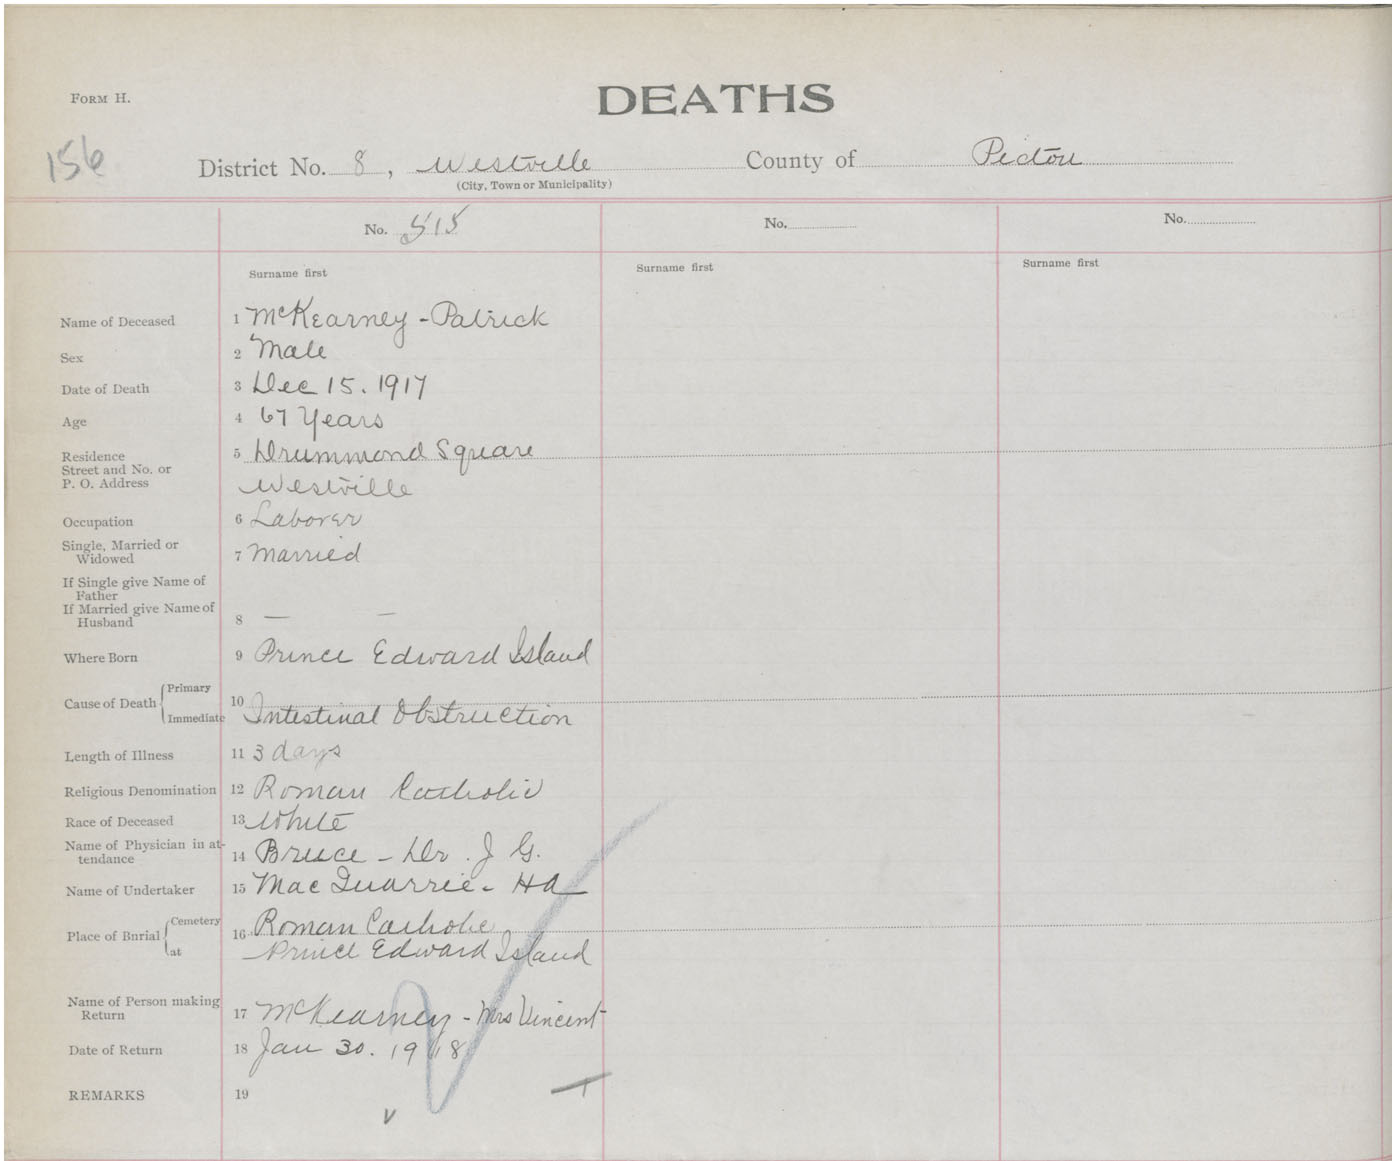 FORM H.
DEATHS
156
District No. 8, Westville County of Pictou
(City, Town or Municipality)
No. 515 No. No.
Surname first Surname first Surname first
Name of Deceased 1 McKearney - Patrick
Sex 2 Male
Date of Death 3 Dec 15. 1917
Age 4 67 Years
Residence 5 Drummond Square
Street and No. or
P. O. Address Westville
Occupation 6 Laborer
Single, Married or
Widowed 7 Married
If Single give Name of
Father
If Married give Name of
Husband 8 — —
Where Born 9 Prince Edward Island
Cause of Death { Primary
Immediate 10 Intestinal Obstruction
Length of Illness 11 3 days
Religious Denomination 12 Roman Catholic
Race of Deceased 13 White
Name of Physician in at-
tendance 14 Bruce - Dr. J G.
Name of Undertaker 15 MacQuarrie - H A
Place of Burial { Cemetery 16 Roman Catholic
at Prince Edward Island
Name of Person making
Return 17 McKearney - Mrs Vincent
Date of Return 18 Jan 30. 1918
REMARKS 19